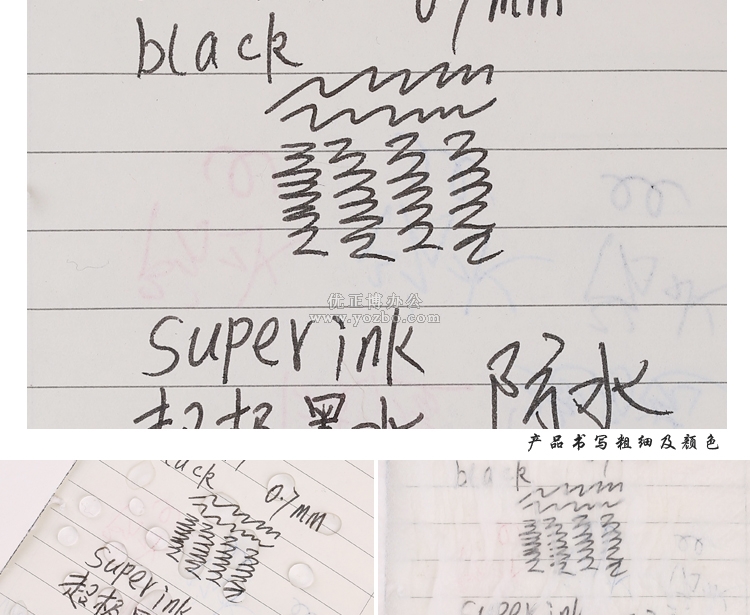 0.7mm
black
优正博办公
www.yozbo.com
superink 防水
超极墨水
产品书写粗细及颜色
black
0.7mm
superink
超极
black
superink